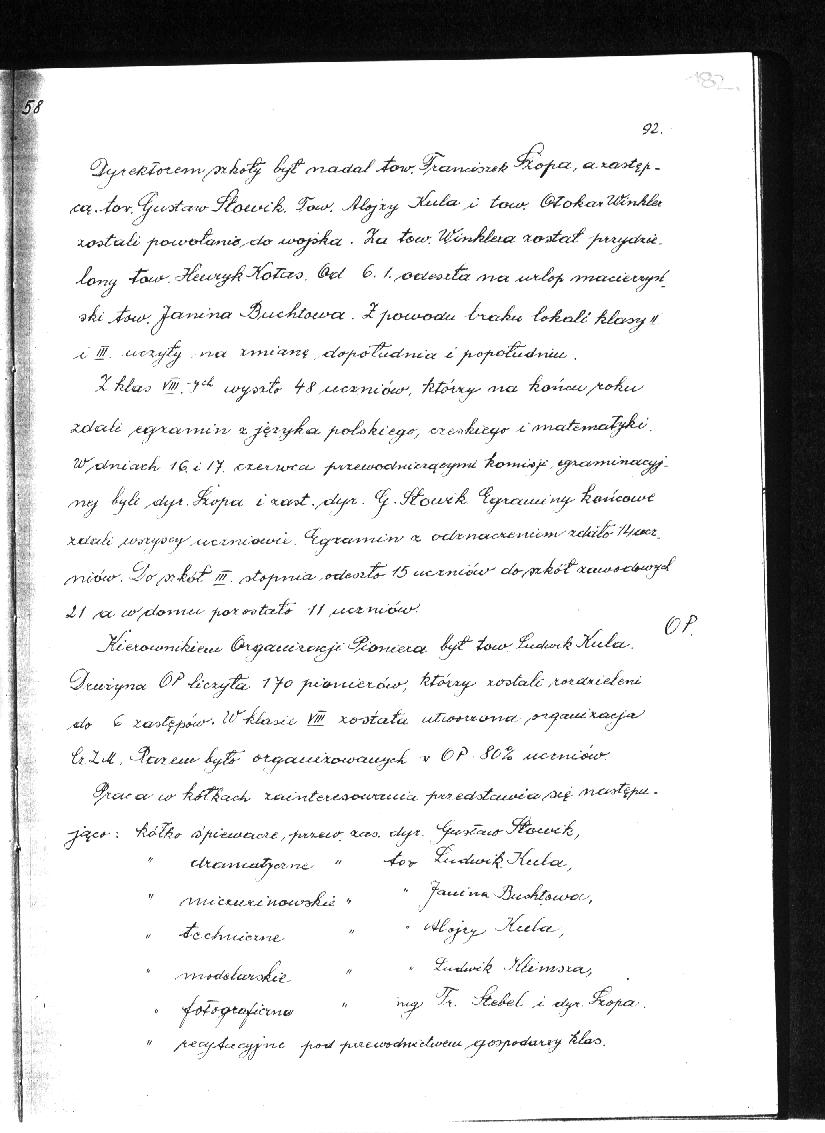 182.
58
92.
Dyrektorem szkoły był nadal tow. Franciszek Szopa, a zastęp-
cą tow. Gustaw Słowik. Tow. Alojzy Kula i tow. Otokar Winkler
zostali powołanie do wojska. Za tow. Winklera został przydzie-
lony tow. Henryk Kotas. Od 6. 1. odeszła na urlop macierzyń-
ski tow. Janina Buchtowa. Z powodu braku lokali klasy II
i III. uczyły na zmianę dopołudnia i popołudniu.
Z klas VIII.-ych wyszło 48 uczniów, którzy na końcu roku
zdali egzamin z języka polskiego, czeskiego i matematyki.
W dniach 16. i 17. czerwca przewodniczącymi komisji egzaminacyj-
nej byli dyr. Szopa i zast. dyr. G. Słowik Egzaminy końcowe
zdali wszyscy uczniowie. Egzamin z odznaczeniem zdało 14 ucz-
niów. Do szkół III. stopnia odeszło 15 uczniów do szkół zawodowych
21 a w domu pozostało 11 uczniów.
OP.
Kierownikiem Organizacji Pioniera był tow Ludwik Kula.
Drużyna OP liczyła 170 pionierów, którzy zostali rozdzieleni
do 6 zastępów. W klasie VIII została utworzona organizacja
Cz.Z.M. Razem było organizowanych w OP 80% uczniów
Praca w kółkach zainteresowania przedstawia się następu-
jąco: kółko śpiewacze, przew. zas. dyr. Gustaw Słowik,
" dramatyczne " tow Ludwik Kula,
" miczurinowskie " " Janina Buchtowa,
" techniczne " " Alojzy Kula,
" modelarskie " " Ludwik Klimsza,
" fotograficzne " Tr. Stebel i dyr. Szopa.
" recytacyjne pod przewodnictwem gospodarzy klas.